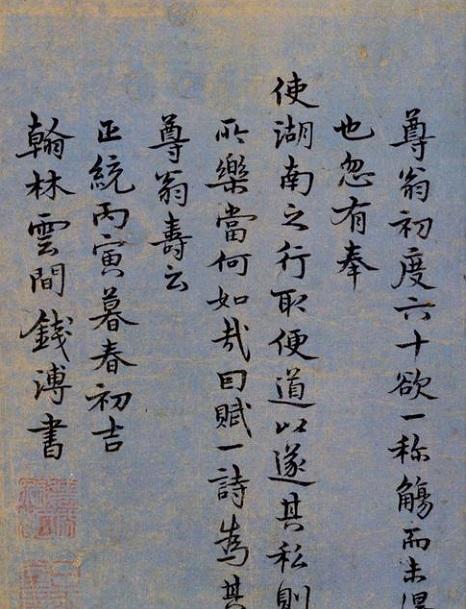 尊翁初度六十欲一称觴而未得
也忽有奉
使湖南之行取便道以遂其私則
所樂當何如哉曰賦一詩為其
尊翁壽云
正統丙寅暮春初吉
翰林雲間錢溥書